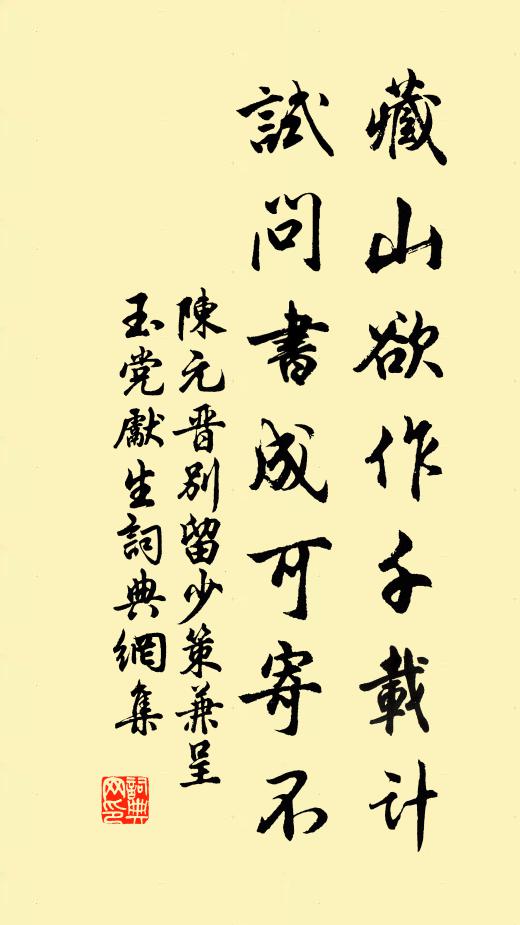 藏山欲作千載計
試問書成可寄不
陳元晋別留少策兼呈
玉党獻生詞典網集
詞典網印